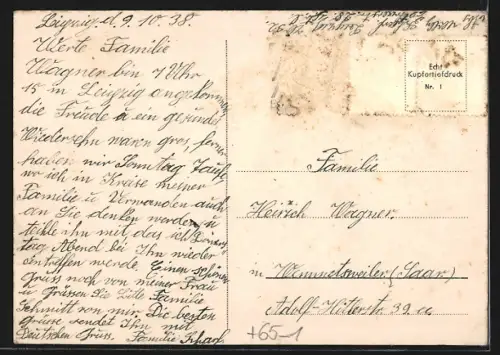 Leipzig d. 9. 10. 38.
Werte Familie
Wagner bin 1 Uhr
15 in Leipzig angekommen
die Freude u ein gesundes
Wiedersehn waren gros, ferner
haben wir Sonntag Taufe,
wo ich in Kreise meiner
Familie u Verwanden auch
an Sie denken werde, u
teile ihn mit das ich
tag Abend bei Ihn wieder
eintreffen werde. Einen schönen
Gruss noch von meiner Frau
u. Grüssen Sie bitte Familie
Schmitt von mir. Die besten
Grüsse sendet Ihn mit
Deutschen Gruss. Familie
Echt
Kupfertiefdruck
Nr. 1
Familie
Heirich Wagner.
in Wemmetsweiler (Saar)
Adolf-Hitlerstr. 39 a
+65-1